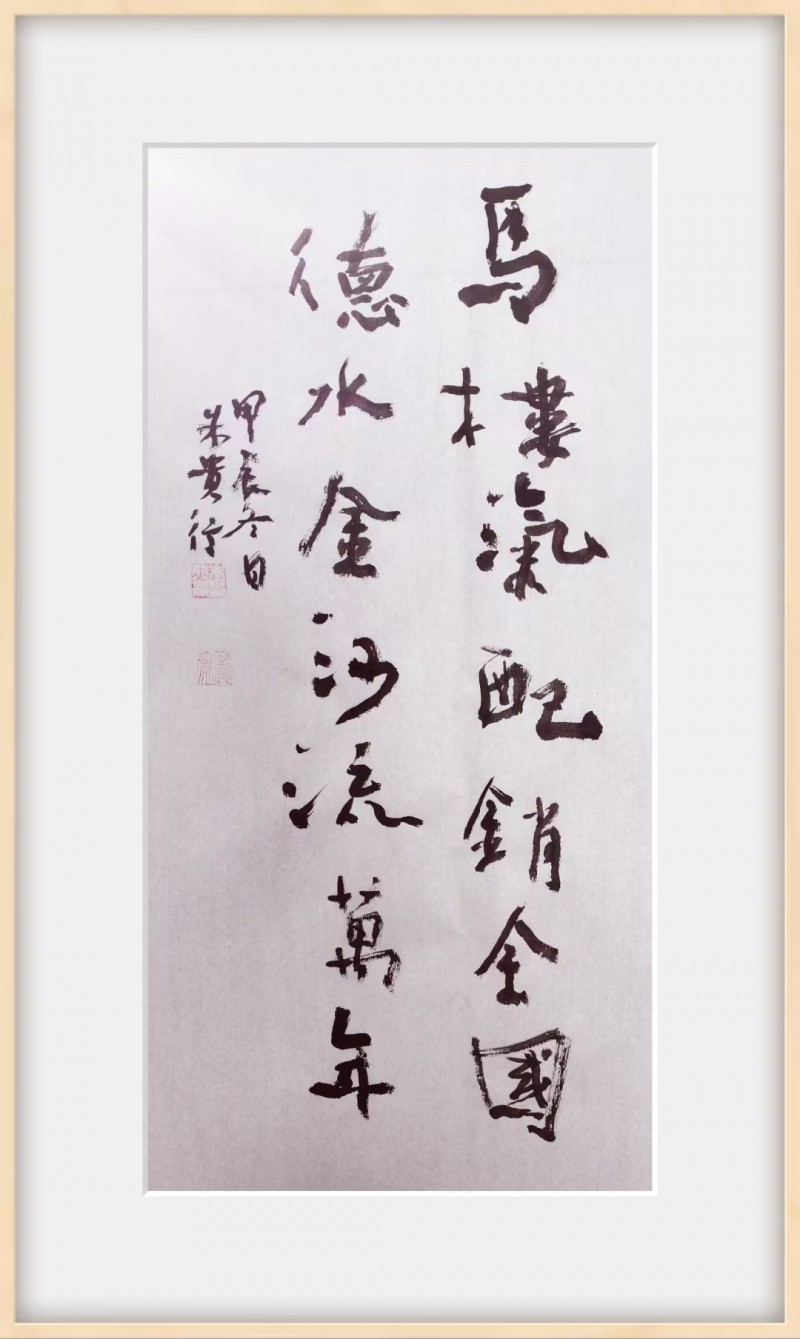 馬樓氣配銷全國
德水金沙流萬年
甲辰冬日
朱貴行